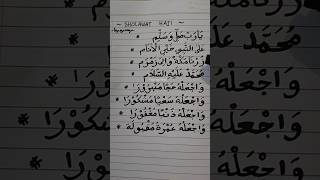 ~ SHOLAWAT HAJI ~
يَارَبِّ صَلِّ وَسَلِّمْ *
عَلَى النَّبِيِّ خَيْرِ الْأَنَامِ *
زُرْنَا مَكَّةَ وَالزَّمْزَمَ *
مُحَمَّدْ عَلَيْهِ السَّلَامْ *
وَاجْعَلْهُ حَجًّا مَبْرُوْرًا *
وَاجْعَلْهُ سَعْيًا مَشْكُوْرًا *
وَاجْعَلْهُ ذَنْبًا مَغْفُوْرًا *
وَاجْعَلْهُ عُمْرَةً مَقْبُوْلَةً *